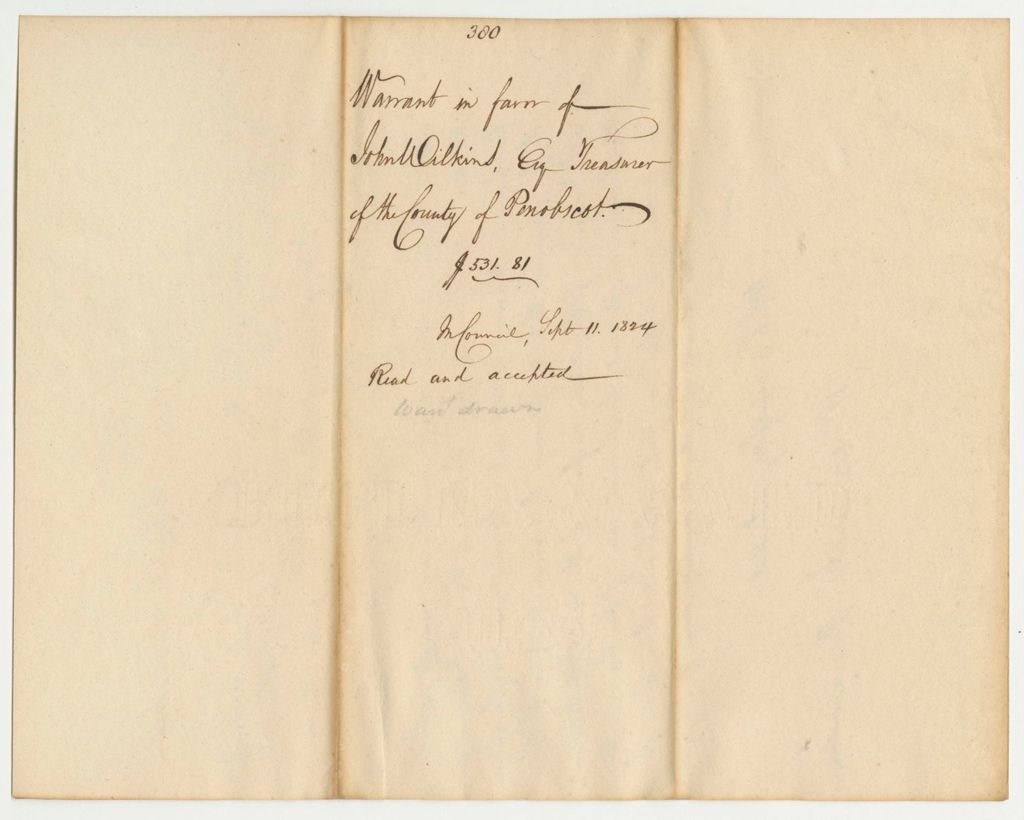 380
Warrant in favor of
John Wilkins, Esq Treasurer
of the County of Penobscot.
$ 531. 81
In Council, Sept 11. 1824
Read and accepted
Warrt drawn